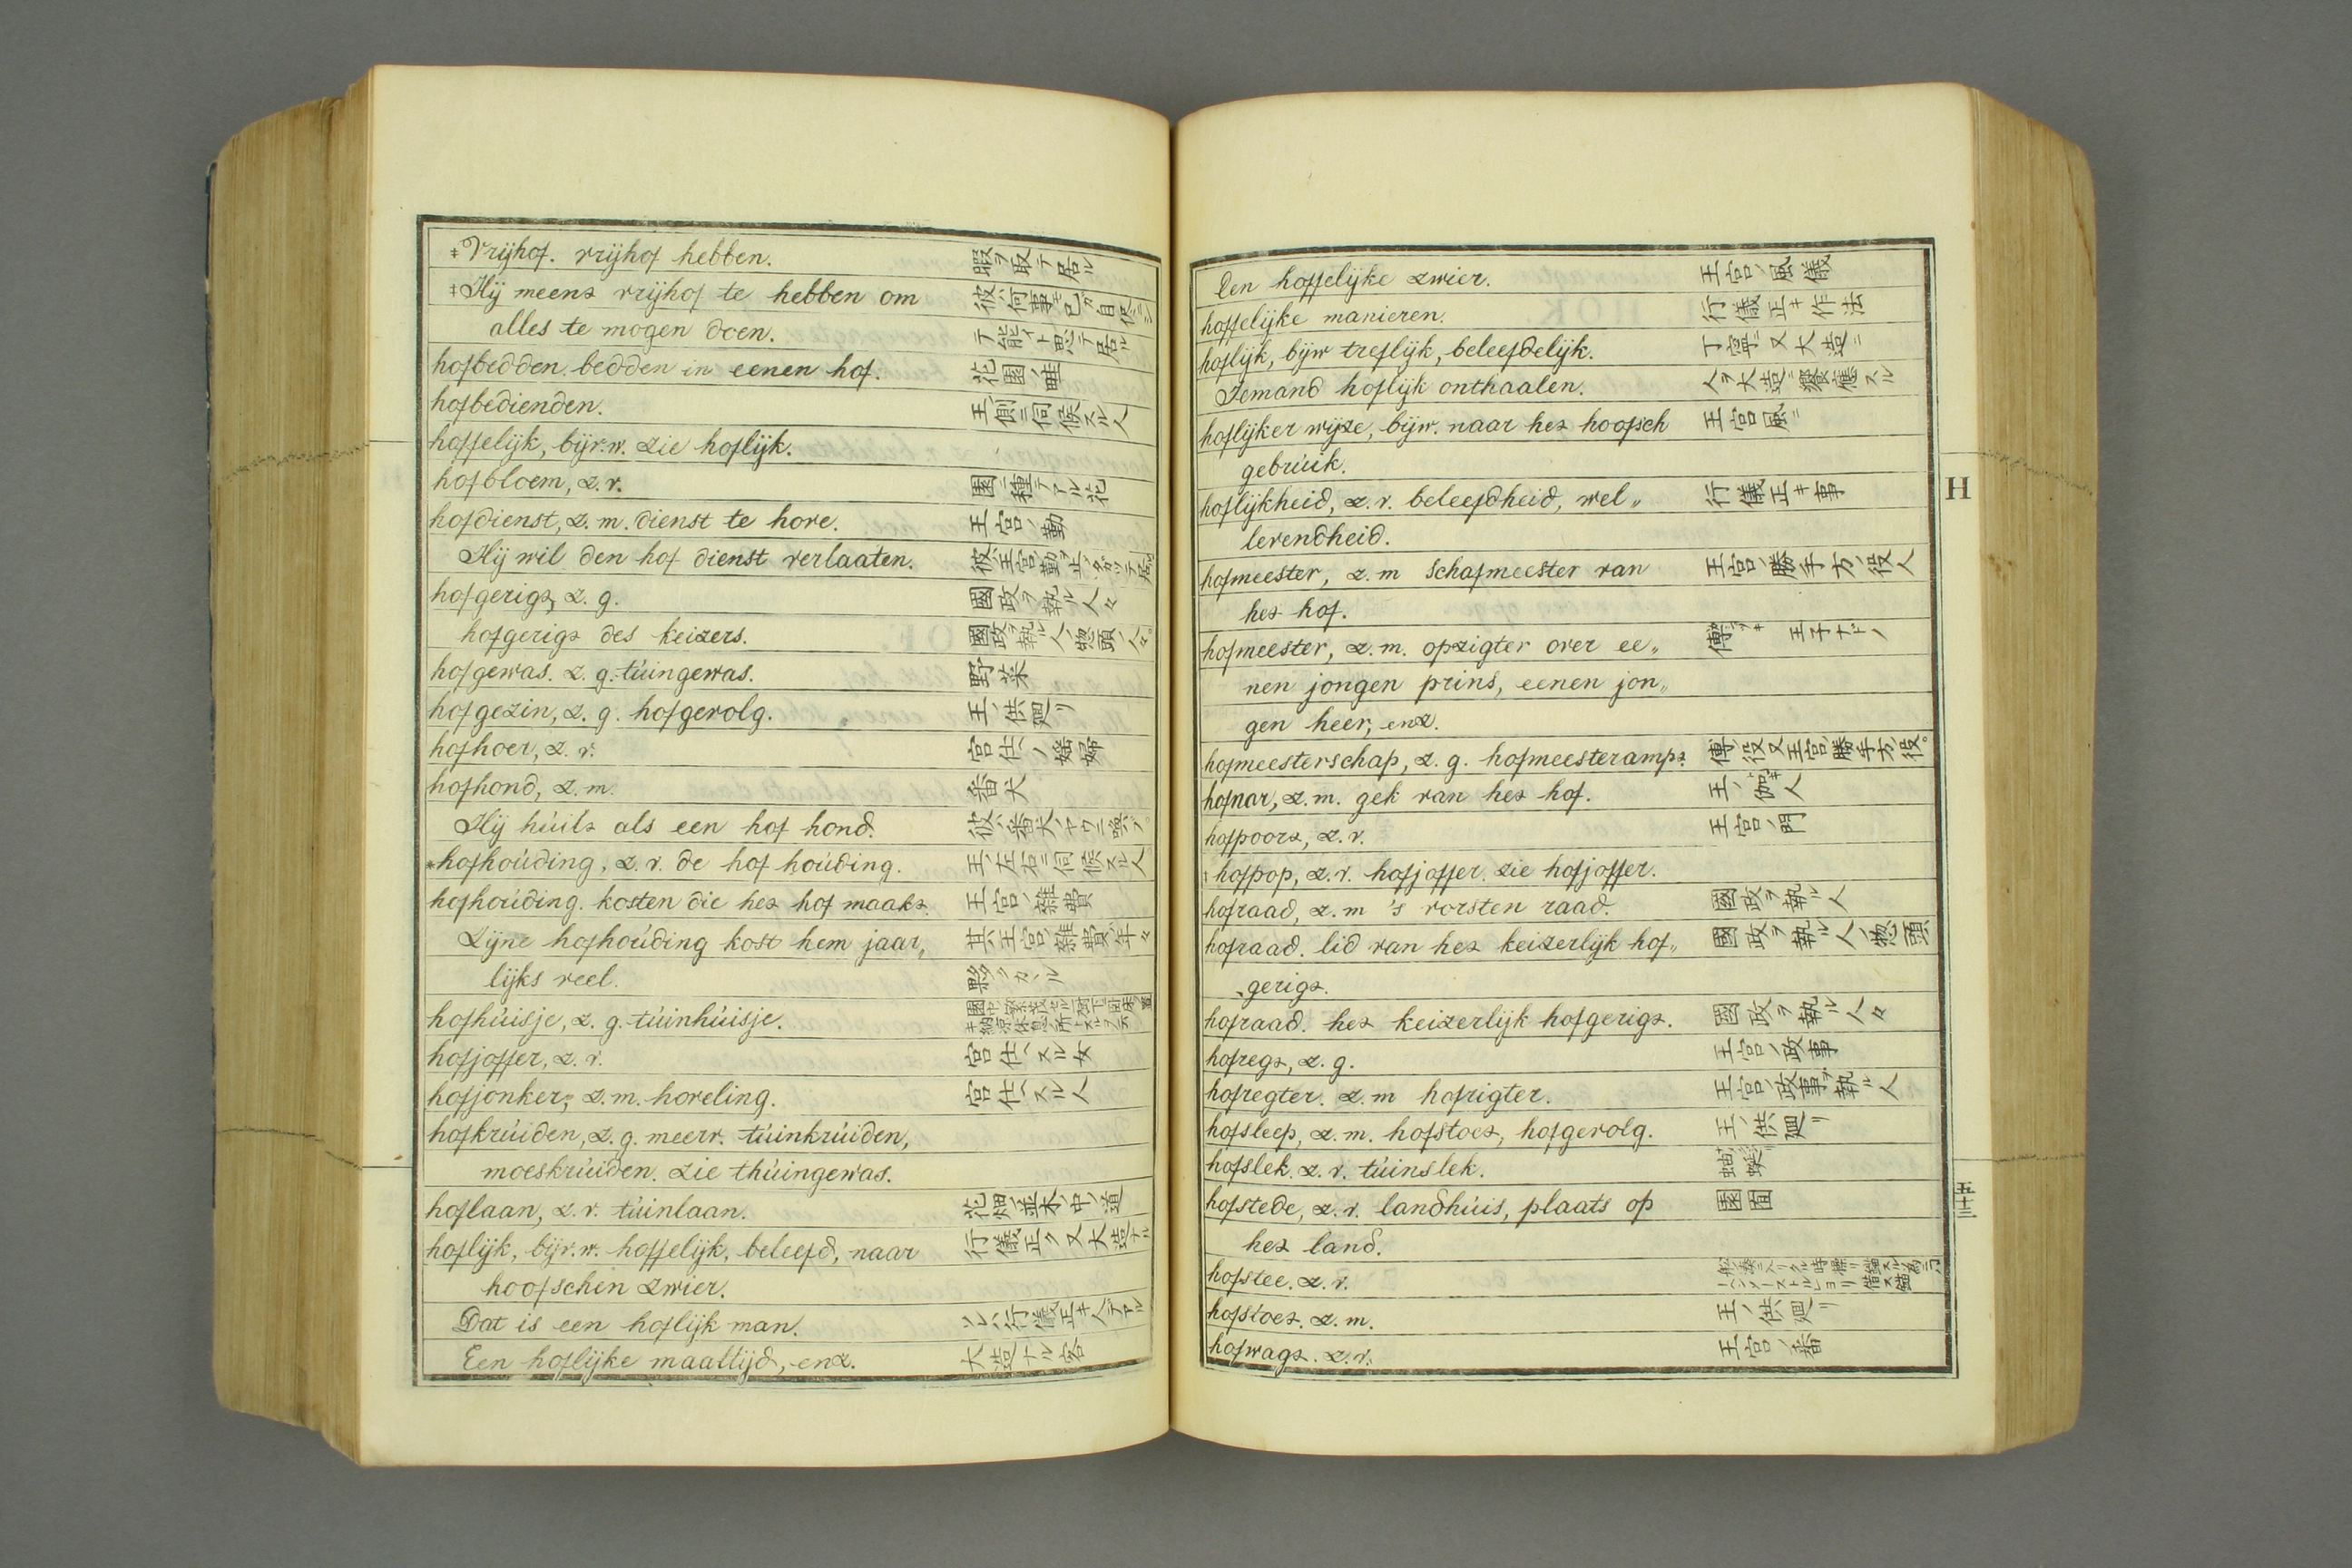 ‡Vrijhof. vrijhof hebben. 暇ヲ取テ居ル
‡Hij meent vrijhof te hebben om 彼ハ何事モ己ガ自侭ニシ
alles te mogen doen. テ能イト思テ居ル
hofbedden. bedden in eenen hof. 花園ノ畦
hofbedienden. 王ノ側ニ伺候スル人
hoffelijk, bijv. w. zie hoflijk.
hofbloem, z. v. 園ニ種テアル花
hofdienst, z. m. dienst te hove. 王宮ノ勤
Hij wil den hof dienst verlaaten.
hofgerigt, z. g. 國政ヲ執ル人々
hofgerigt des keizers. 國政ヲ執ル人ノ惣頭ノ人々。
hofgewas. z. g. túingewas. 野菜
hofgezin, z. g. hofgevolg. 王ノ供廻リ
hofhoer, z. v. 宮仕ヘノ婬婦
hofhond, z. m. 番犬
Hij húilt als een hof hond. 彼ハ番犬ノヤウニ嘷ブ。
*hofhoúding, z. v. de hof hoúding. 王ノ左右ニ伺候スル人
hofhoúding. kosten die het hof maakt. 王宮ノ雜費
Zijne hofhoúding kost hem jaar„ 其王宮ノ雜費ガ年々
lijks veel. 夥クカヽル
hofhúisje, z. g. túinhúisje.
hofjoffer, z. v. 宮仕ヘスル女
hofjonker, z. m. hoveling. 宮仕ヘスル人
hofkrúiden, z. g. meerv. túinkrúiden,
moeskrúiden. zie thúingewas.
hoflaan, z. v. túinlaan. 花畑ノ並木ノ中ノ道
hoflijk, bijv. w. hoffelijk, beleefd, naar 行儀正ク又大造ナル
hoofschen zwier.
Dat is een hoflijk man. ソレハ行儀正キ人デアル
Een hoflijke maaltijd, enz. 大造ナル客
Een hoffelijke zwier. 王宮ノ風儀
hoffelijke manieren. 行儀正キ作法
hoflijk, bijw treflijk, beleefdelijk. 丁寧ニ又大造ニ
Iemand hoflijk onthaalen. 人ヲ大造ニ饗應スル
hoflijker wijze, bijw. naar het hoofsch 王宮風ニ
gebrúik.
hoflijkheid, z. v. beleefdheid, wel„ 行儀正キ事
levendheid.
hofmeester, z. m schafmeester van 王宮ノ勝手方ノ役人
het hof.
hofmeester, z. m. opzigter over ee„ 傅 王子ナドノ
nen jongen prins, eenen jon„
gen heer, enz.
hofmeesterschap, z. g. hofmeesterampt. 傅ノ役又王宮ノ勝手方ノ役。
hofnar, z. m. gek van het hof. 王ノ伽人
hofpoort, z. v. 王宮ノ門
‡hofpop, z. v. hofjoffer. zie hofjoffer.
hofraad, z. m 's vorsten raad. 國政ヲ執ル人
hofraad. lid van het keizerlijk hof„ 國政ヲ執ル人ノ惣頭
gerigt.
hofraad. het keizerlijk hofgerigt. 國政ヲ執ル人々
hofregt, z. g. 王宮ノ政事
hofregter. z. m hofrigter. 王宮ノ政事ヲ執ル人
hofsleep, z. m. hofstoet, hofgevolg. 王ノ供廻リ
hofslek. z. v. túinslek.
hofstede, z. v. landhúis, plaats op
het land.
hofstee. z. v.
hofstoet. z. m. 王ノ供廻リ
hofwagt. z. v. 王宮ノ番
H
五十三